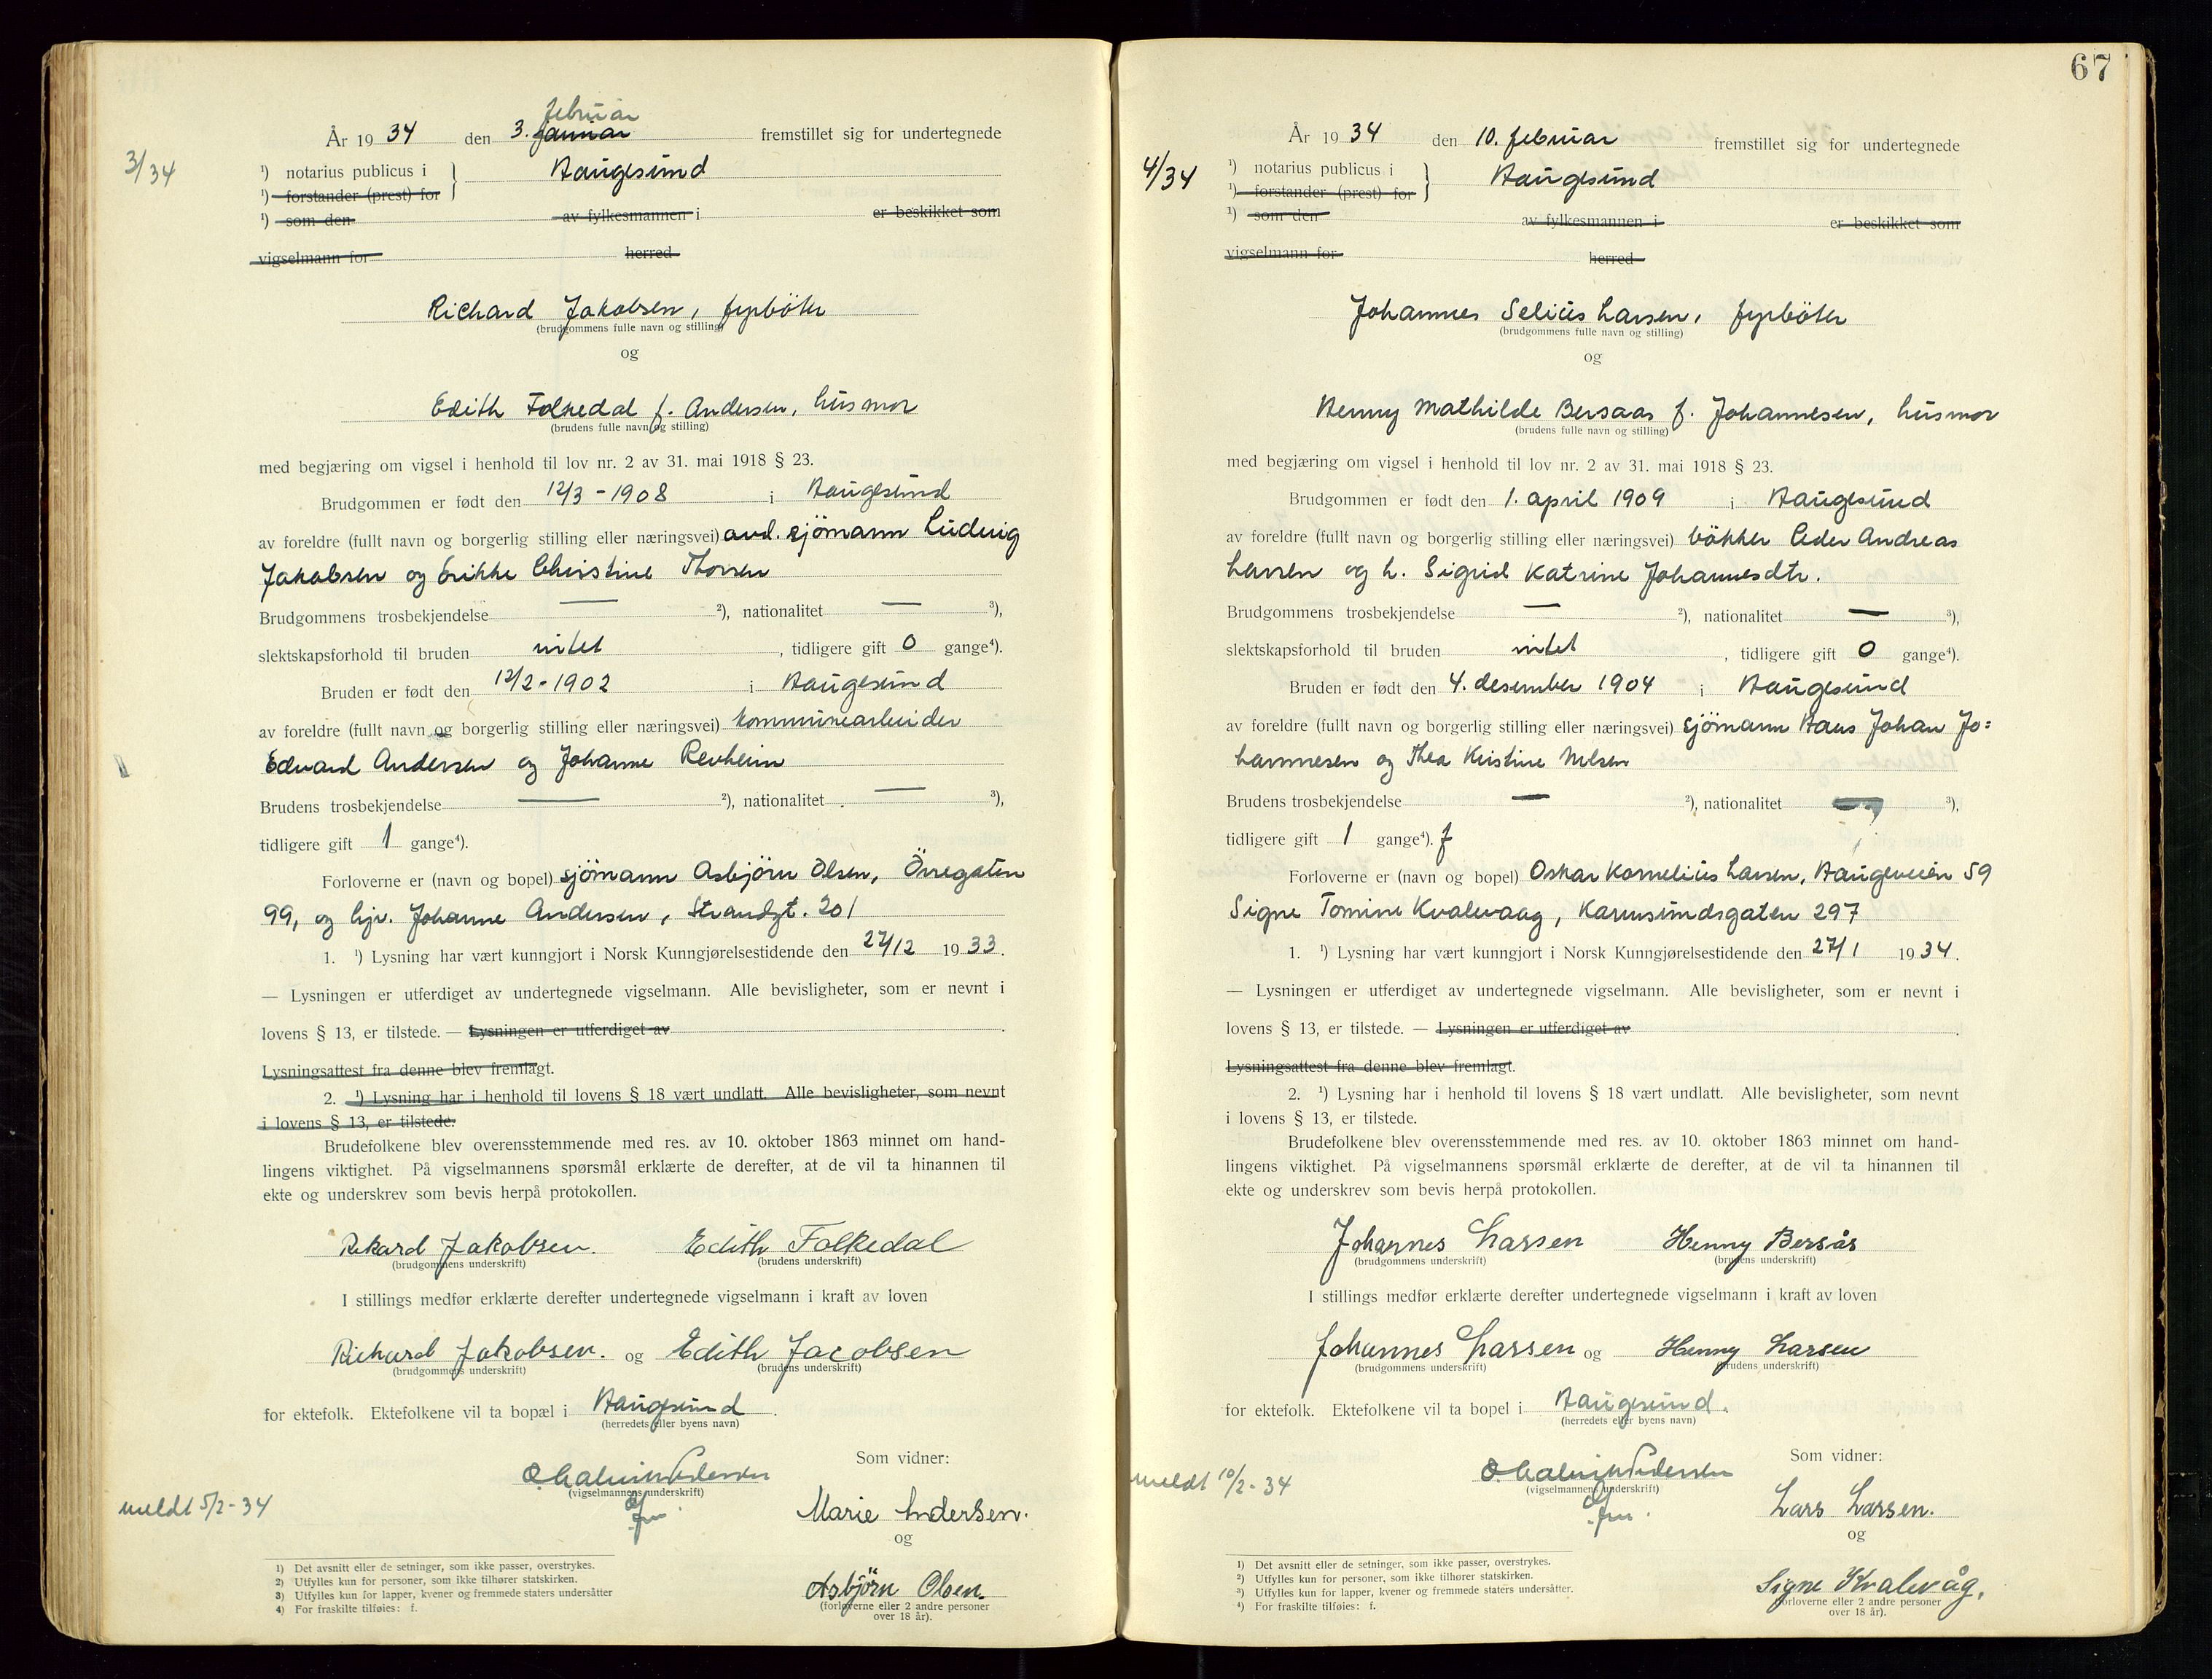 februar
År 19 34 den 3. januar fremstillet sig for undertegnede
3/34
¹) notarius publicus i } Haugesund
¹) forstander (prest) for
¹) som den av fylkesmannen i er beskikket som
vigselmann for herred
Richard Jakobsen, fyrböter
(brudgommens fulle navn og stilling)
og
Edith Folkedal f. Andersen, husmor
(brudens fulle navn og stilling)
med begjæring om vigsel i henhold til lov nr. 2 av 31. mai 1918 § 23.
Brudgommen er født den 12/3 - 1908 i Haugesund
av foreldre (fullt navn og borgerlig stilling eller næringsvei) avd. sjömann Ludvig
Jakobsen og Erikke Christine Thorsen
Brudgommens trosbekjendelse — ²), nationalitet — ³),
slektskapsforhold til bruden intet, tidligere gift 0 gange⁴).
Bruden er født den 12/2 - 1902 i Haugesund
av foreldre (fullt navn og borgerlig stilling eller næringsvei) kommunearbeider
Edvard Andersen og Johanne Revheim
Brudens trosbekjendelse — ²), nationalitet — ³),
tidligere gift 1 gange⁴).
Forloverne er (navn og bopel) sjömann Asbjörn Olsen, Övregaten
99, og hjv. Johanne Andersen, Strandgt. 201
1. ¹) Lysning har vært kunngjort i Norsk Kunngjørelsestidende den 27/12 19 33.
— Lysningen er utferdiget av undertegnede vigselmann. Alle bevisligheter, som er nevnt i
lovens § 13, er tilstede. — Lysningen er utferdiget av
Lysningsattest fra denne blev fremlagt.
2. ¹) Lysning har i henhold til lovens § 18 vært undlatt. Alle bevisligheter, som nevnt
i lovens § 13, er tilstede.
Brudefolkene blev overensstemmende med res. av 10. oktober 1863 minnet om hand-
lingens viktighet. På vigselmannens spørsmål erklærte de derefter, at de vil ta hinannen til
ekte og underskrev som bevis herpå protokollen.
Rikard Jakobsen. Edith Folkedal
(brudgommens underskrift) (brudens underskrift)
I stillings medfør erklærte derefter undertegnede vigselmann i kraft av loven
Richard Jakobsen. og Edith Jacobsen
(brudgommens underskrift) (brudens underskrift)
for ektefolk. Ektefolkene vil ta bopæl i Haugesund.
(herredets eller byens navn)
Som vidner:
(vigselmannens underskrift)
meldt 5/2 - 34
Marie Andersen.
og
Asbjörn Olsen.
(forloverne eller 2 andre personer
over 18 år).
1) Det avsnitt eller de setninger, som ikke passer, overstrykes.
2) Utfylles kun for personer, som ikke tilhører statskirken.
3) Utfylles kun for lapper, kvener og fremmede staters undersåtter
4) For fraskilte tilføies: f.
67
År 19 34 den 10. februar fremstillet sig for undertegnede
4/34
¹) notarius publicus i } Haugesund
¹) forstander (prest) for
¹) som den av fylkesmannen i er beskikket som
vigselmann for herred
Johannes Selius Larsen, fyrböter
(brudgommens fulle navn og stilling)
og
Henny Mathilde Bersaas f. Johannesen, husmor
(brudens fulle navn og stilling)
med begjæring om vigsel i henhold til lov nr. 2 av 31. mai 1918 § 23.
Brudgommen er født den 1. april 1909 i Haugesund
av foreldre (fullt navn og borgerlig stilling eller næringsvei) bökker Peder Andreas
Larsen og h. Sigrid Katrine Johannesdtr.
Brudgommens trosbekjendelse — ²), nationalitet — ³),
slektskapsforhold til bruden intet, tidligere gift 0 gange⁴).
Bruden er født den 4. desember 1904 i Haugesund
av foreldre (fullt navn og borgerlig stilling eller næringsvei) sjömann Hans Johan Jo=
hannesen og Thea Kristine Nilsen
Brudens trosbekjendelse — ²), nationalitet — ³),
tidligere gift 1 gange⁴). f
Forloverne er (navn og bopel) Oskar Kornelius Larsen, Haugeveien 59
Signe Tomine Kvalevaag, Karmsundsgaten 297
1. ¹) Lysning har vært kunngjort i Norsk Kunngjørelsestidende den 27/1 19 34.
— Lysningen er utferdiget av undertegnede vigselmann. Alle bevisligheter, som er nevnt i
lovens § 13, er tilstede. — Lysningen er utferdiget av
Lysningsattest fra denne blev fremlagt.
2. ¹) Lysning har i henhold til lovens § 18 vært undlatt. Alle bevisligheter, som nevnt
i lovens § 13, er tilstede.
Brudefolkene blev overensstemmende med res. av 10. oktober 1863 minnet om hand-
lingens viktighet. På vigselmannens spørsmål erklærte de derefter, at de vil ta hinannen til
ekte og underskrev som bevis herpå protokollen.
Johannes Larsen Henny Bersås
(brudgommens underskrift) (brudens underskrift)
I stillings medfør erklærte derefter undertegnede vigselmann i kraft av loven
Johannes Larsen og Henny Larsen
(brudgommens underskrift) (brudens underskrift)
for ektefolk. Ektefolkene vil ta bopel i Haugesund.
(herredets eller byens navn)
Som vidner:
(vigselmannens underskrift)
meldt 10/2 - 34
Lars Larsen.
og
Signe Kvalevåg.
(forloverne eller 2 andre personer
over 18 år).
1) Det avsnitt eller de setninger, som ikke passer, overstrykes.
2) Utfylles kun for personer, som ikke tilhører statskirken.
3) Utfylles kun for lapper, kvener og fremmede staters undersåtter.
4) For fraskilte tilføies: f.